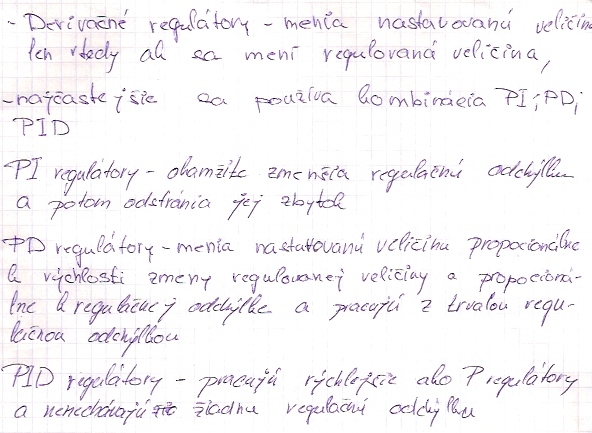 - Derivačné regulátory - menia nastavovanú veličinu
len vtedy ak sa mení regulovaná veličina,
- najčastejšie sa používa kombinácia PI, PD,
PID
PI regulátory - okamžite zmenšia regulačnú odchýlku
a potom odstránia jej zbytok
PD regulátory - menia nastavovanú veličinu propocionálne
k rýchlosti zmeny regulovanej veličiny a propocioná-
lne k regulačnej odchýlke a pracujú z trvalou regu-
lačnou odchýlkou
PID regulátory - pracujú rýchlejšie ako P regulátory
a nenechávajú žiadnu regulačnú odchýlku